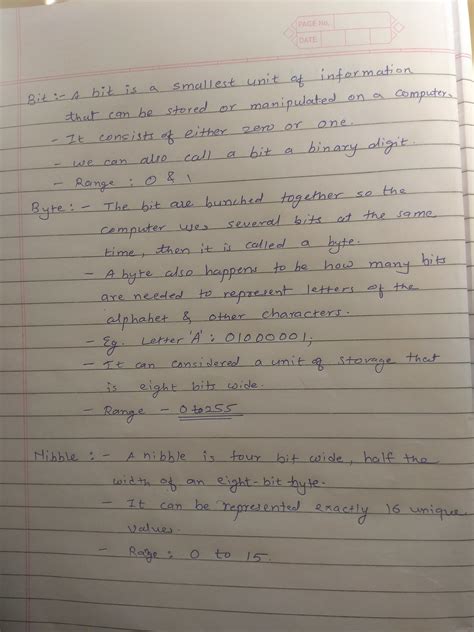 PAGE No.
DATE
Bit :- A bit is a smallest unit of information
that can be stored or manipulated on a computer.
- It consists of either zero or one.
- we can also call a bit a binary digit.
- Range : 0 & 1
Byte : - The bit are bunched together so the
computer uses several bits at the same
time, then it is called a byte.
- A byte also happens to be how many bits
are needed to represent letters of the
alphabet & other characters.
- Eg. Letter 'A' : 01000001;
- It can considered a unit of storage that
is eight bits wide.
- Range - 0 to 255
Nibble : - A nibble is four bit wide, half the
width of an eight-bit byte.
- It can be represented exactly 16 unique
values.
- Rage : 0 to 15.